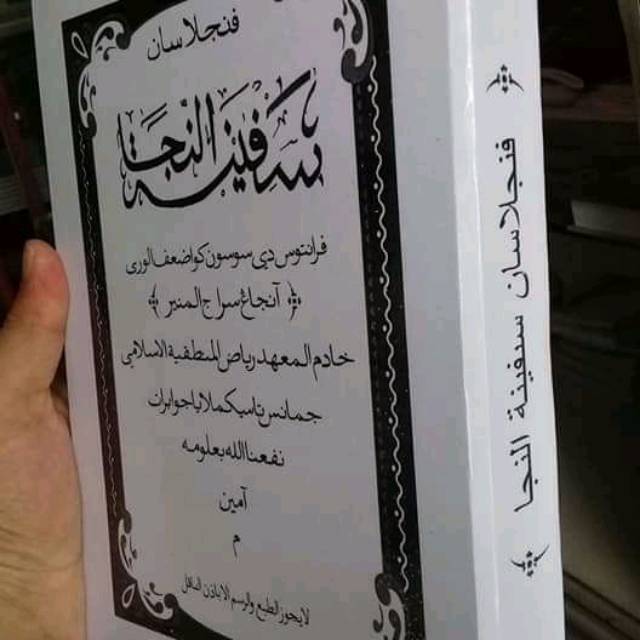 فنجلاسان
سفينة النجا
فرانتوس دي سوسون كو اضعف الورى
﴿ آنجاغ سراج المنير ﴾
خادم المعهد رياض المنطقية الاسلامي
جمانس تاسيكملايا جوا برات
نفعنا الله بعلومه
آمين
م
لا يجوز الطبع والرسم الا باذن الناقل
﴿ فنجلاسان سفينة النجا ﴾